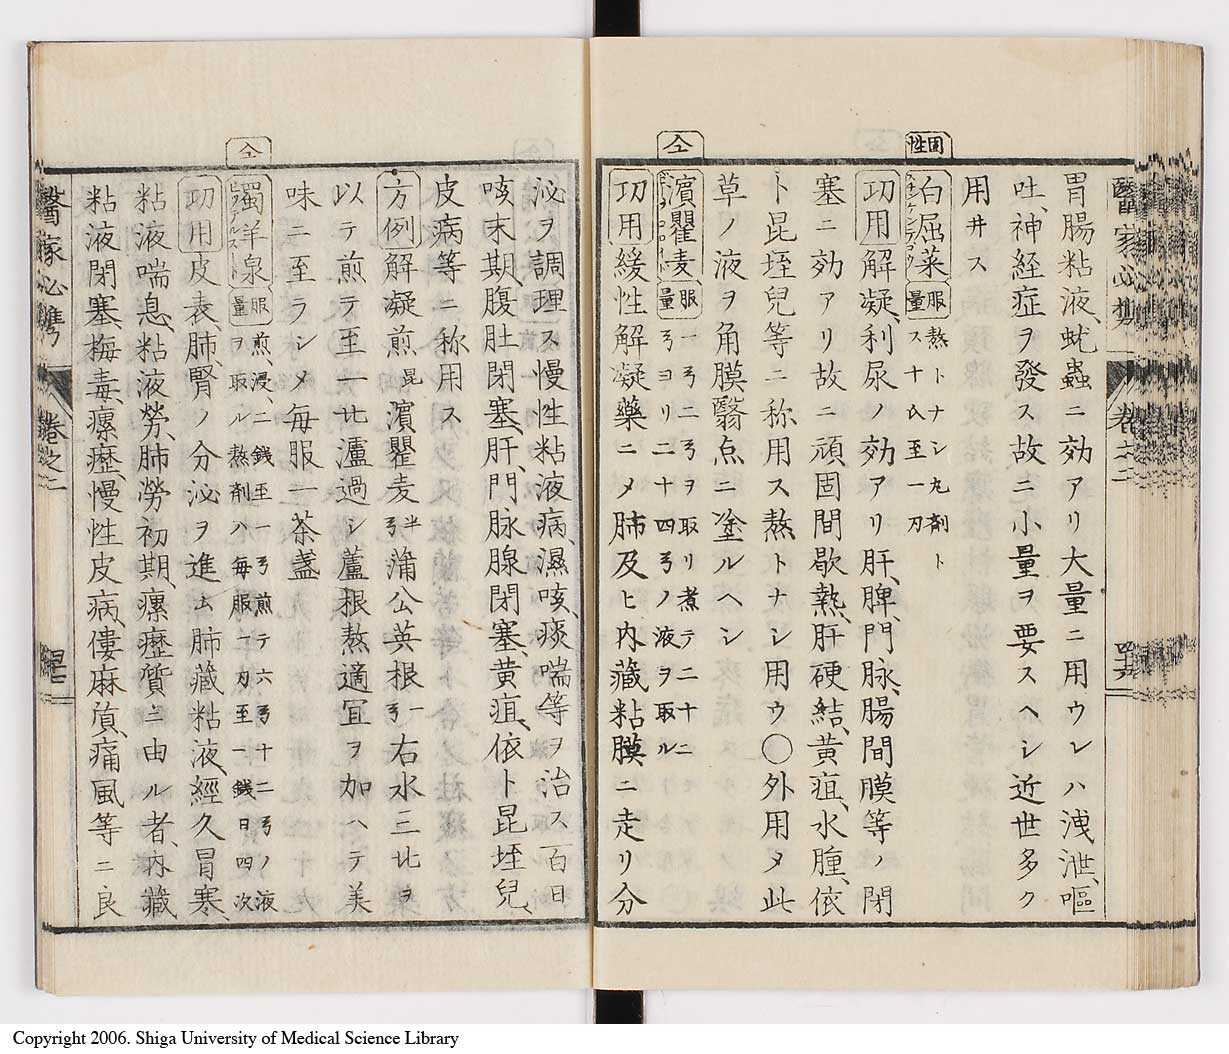 醫家必携
卷之二
胃腸粘液、蚘蟲ニ効アリ大量ニ用ウレハ洩泄、嘔
吐、神経症ヲ發ス故ニ小量ヲ要スヘシ近世多ク
用井ス
固性
白屈菜 服量 熬トナシ丸剤ト
ス十氏至一刃
功用 解凝、利尿ノ効アリ肝、脾、門脉、腸間膜等ノ閉
塞ニ効アリ故ニ頑固間歇熱、肝硬結、黄疸、水腫、依
卜昆垤兒等ニ称用ス熬トナシ用ウ〇外用メ此
草ノ液ヲ角膜翳点ニ塗ルヘシ
仝
濱瞿麦 服量 一弓二弓ヲ取リ煮テ二十二
弓ヨリ二十四弓ノ液ヲ取ル
功用 緩性解凝藥ニメ肺及ヒ内藏粘膜ニ走リ分
泌ヲ調理ス慢性粘液病、濕咳、痰喘等ヲ治ス百日
咳末期、腹肚閉塞、肝、門脉腺閉塞、黄疸、依卜昆垤兒、
皮病等ニ称用ス
方例 解凝煎 昆 濱瞿麦 半弓 蒲公英根 一弓 右水三比ヲ
以テ煎テ至一比瀘過シ蘆根熬適宜ヲ加ハテ美
味ニ至ラシメ毎服一茶盞
仝
獨羊泉 服量 煎、浸、二銭至一弓煎テ六弓十二弓ノ液
ヲ取ル熬剤ハ毎服一刃至一銭日四次
功用 皮表、肺、腎ノ分泌ヲ進ム肺藏粘液、經久冒寒、
粘液喘息、粘液勞、肺勞初期、瘰癧質ニ由ル者、内藏
粘液閉塞、梅毒、瘰癧、慢性皮病、僂麻質、痛風等ニ良
醫家必携
卷之二